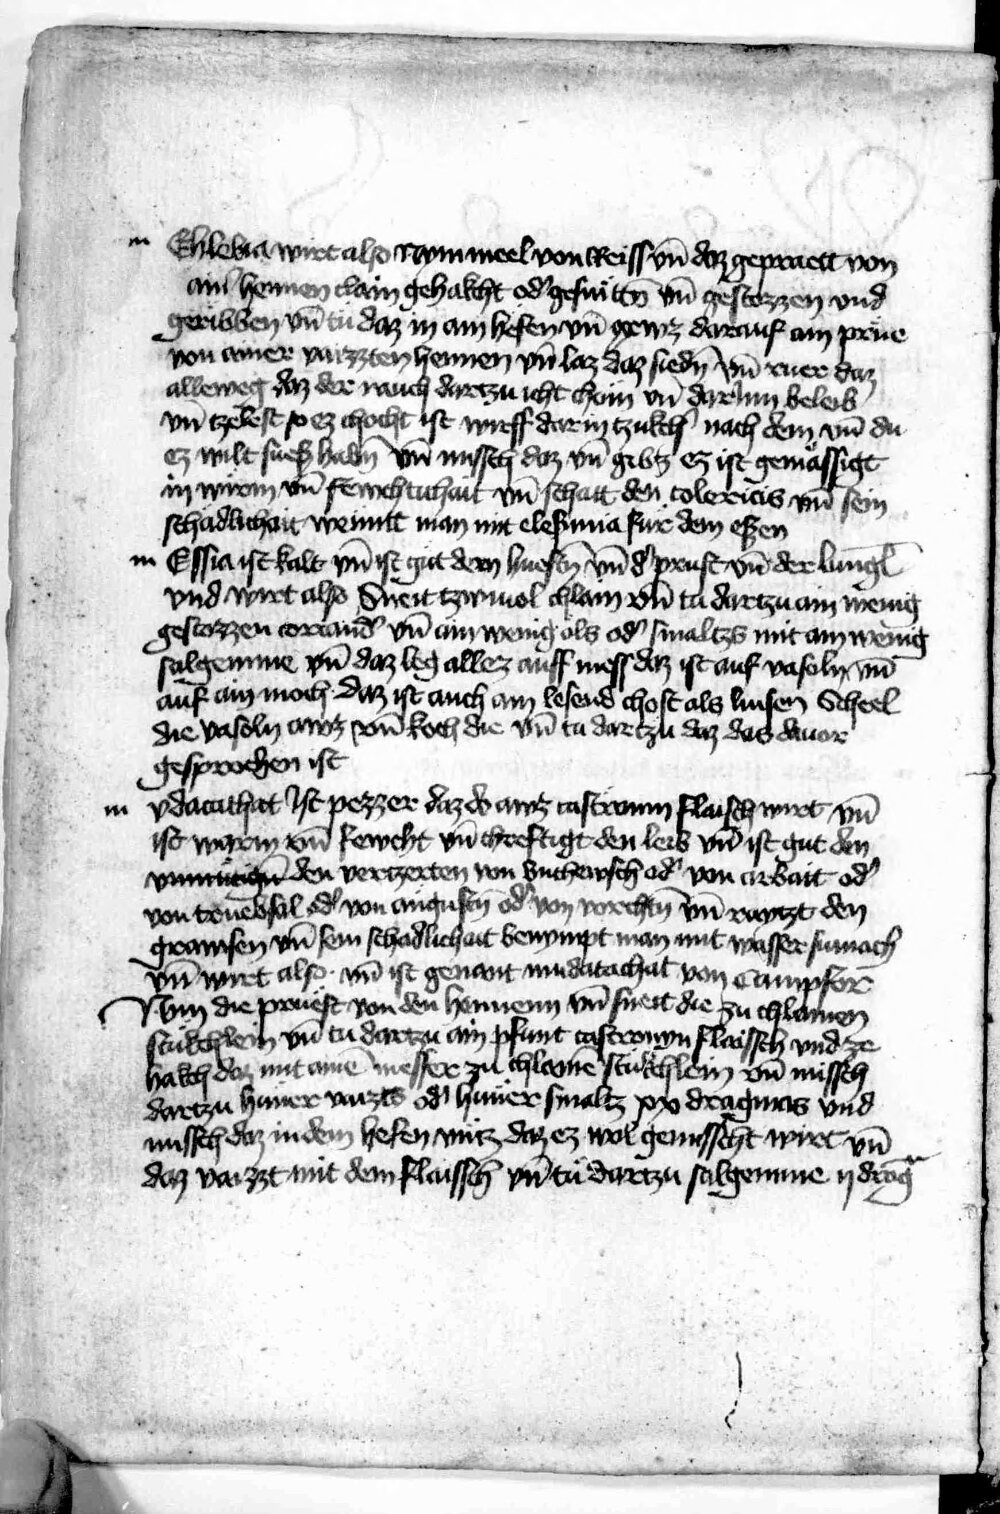 m Ehlebia wirt also Nym meel von Reiss vn̄ daz gepraett von
ainr hennen clain gehakcht od' gesnittn̄ vn̄ gestozzen vnd
geribben vn̄ tu daz in ain hefen vn̄ gewz darauf ain prüe
von ainer vaizzten hennen vn̄ laz daz siedn̄ vn̄ ruer daz
alleweg daz der rauch dartzu icht chöm vn̄ darinn beleib
vn̄ tzelest so ez chocht ist wirff darin tzukch' nach dem vn̄ du
ez wilt suezz habn̄ vn̄ missch daz vn̄ gibtz ez ist gemässigt
in wirm vn̄ fewchtichait vn̄ schatt den colericis vn̄ sein
schadlichait wenntt man mit elesinia für dem ezzen
m Essia ist kalt vn̄ ist gut dem huestn̄ vn̄ d' prust vn̄ der lungl̄
vnd wirt also Sneit tzwiuol chlain vn̄ tu dartzu ain wenig
gestozzen coriand' vn̄ ain wenig öls od' smaltzs mit ain wenig
salgemme vn̄ daz leg allez auff mess daz ist auf vasoln vn̄
auf ain moch · daz ist auch ain lesend chost als linsen Scheel
die vasoln awz vn̄ koch die vn̄ tu dartzu daz das dauor
gesprochen ist
m ydacathat Ist pezzer daz do awz castrounn flaisch wirt vn̄
ist warm vn̄ fewcht vn̄ chreftigt den leib vn̄ ist gut den
den vertzerten von vnchewsch od' von arbait od'
von truebsal od' von angustn̄ od' von vorchtn̄ vn̄ raytzt den
grawsen vn̄ sein schadlichait benympt man mit wasser sumach'
vn̄ wirt also · vn̄ ist genant mudatachat von Campfor
Nym die prüest von den hennenn vn̄ sneit die zu chlainen
stukchlein vn̄ tu dartzu ain pfunt castronyn flaissch vnd ze
hakch daz mit aimē messer zu chlainē stukchlein vn̄ missch
dartzu hüner vaizts od' hüner smaltz xv dragmas vnd
missch daz in dem hefen vntz daz ez wol gemisscht wirt vn̄
daz vaizzt mit dem flaissch vn̄ tu dartzu salgemme ij drag